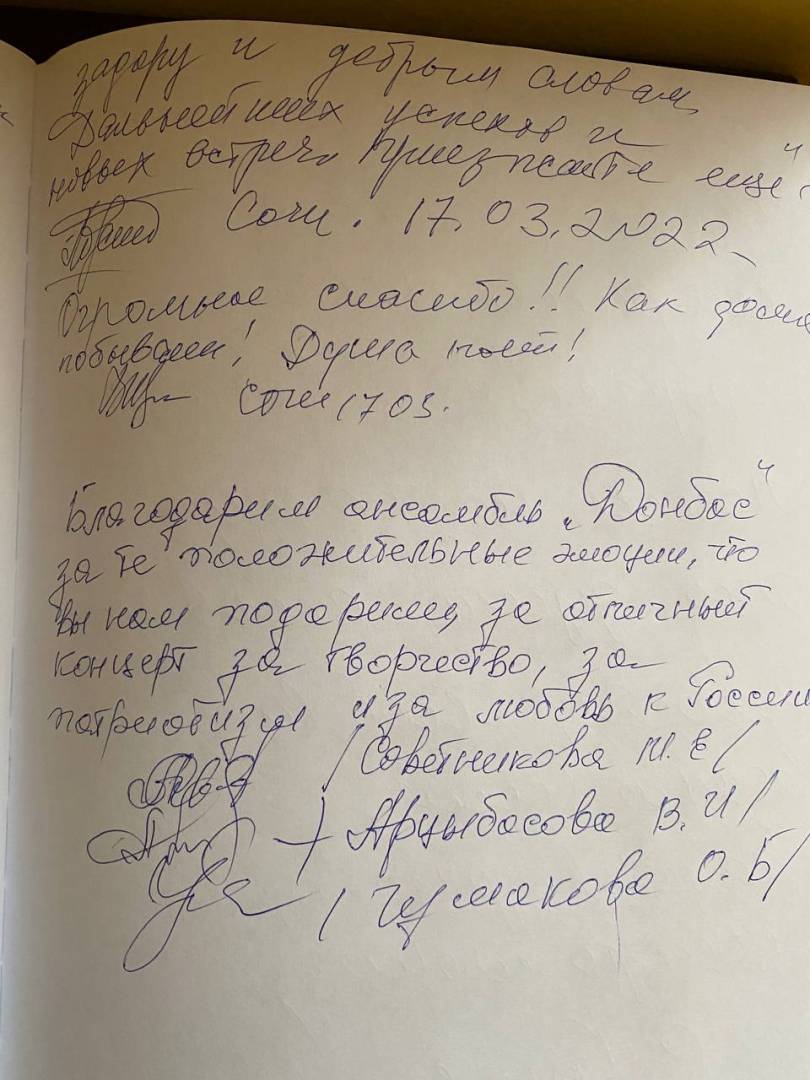 задору и добрым словам,
Дальнейших успехов и
новых встреч. Приезжайте ещё!
Сочи. 17.03.2022
Огромное спасибо!! Как дома
побывали! Душа поёт!
Сочи 17 03.
Благодарим ансамбль „Донбас"
за те положительные эмоции, что
вы нам подарили, за отличный
концерт за творчество, за
патриотизм и за любовь к России
/ Советникова М. Е /
/ Арцыбасова В. И /
/ Чумакова О. Б /